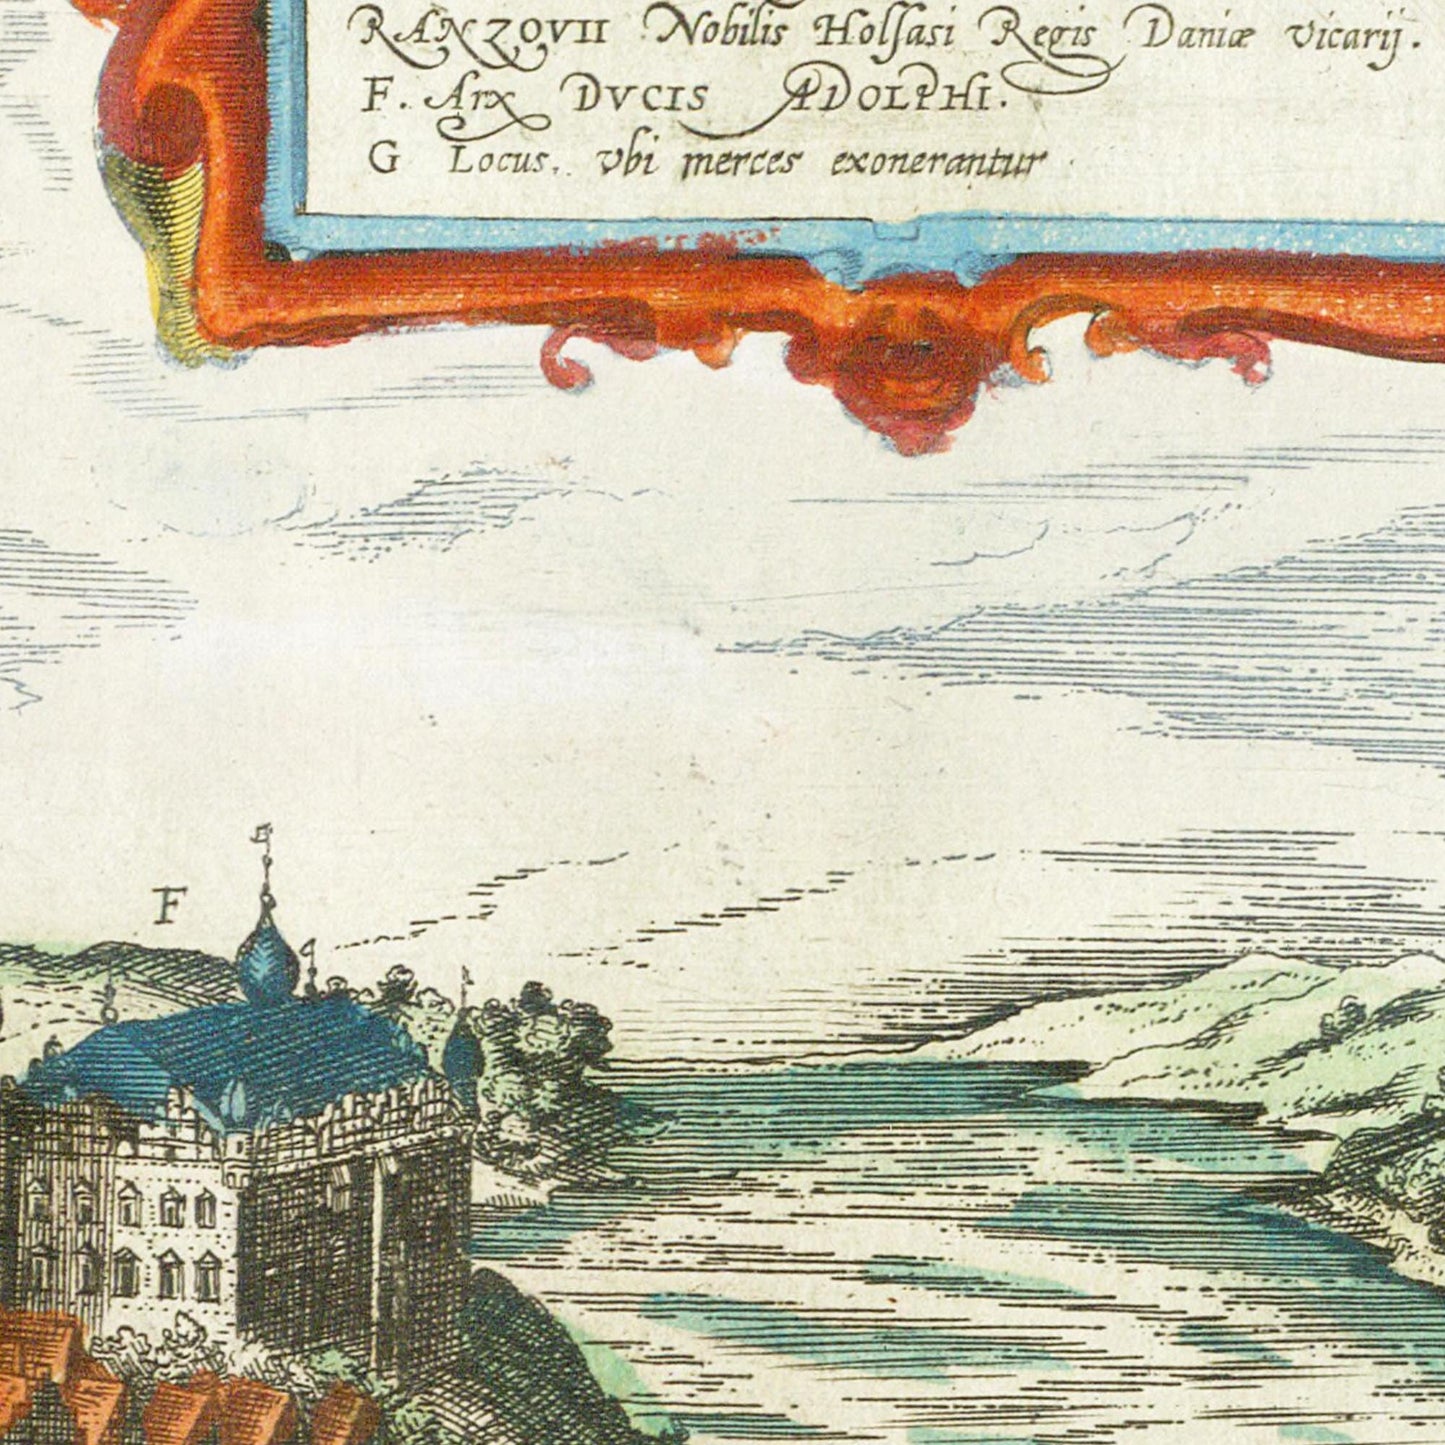 RANZOVII Nobilis Holsasi Regis Daniæ vicarij.
F. Arx DVCIS ADOLPHI.
G Locus, vbi merces exonerantur
F